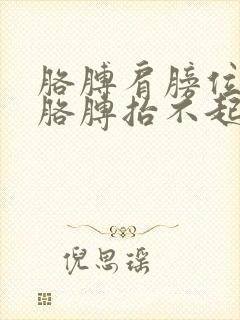 胳膊肩膀位
胳膊抬不起
倪思瑶